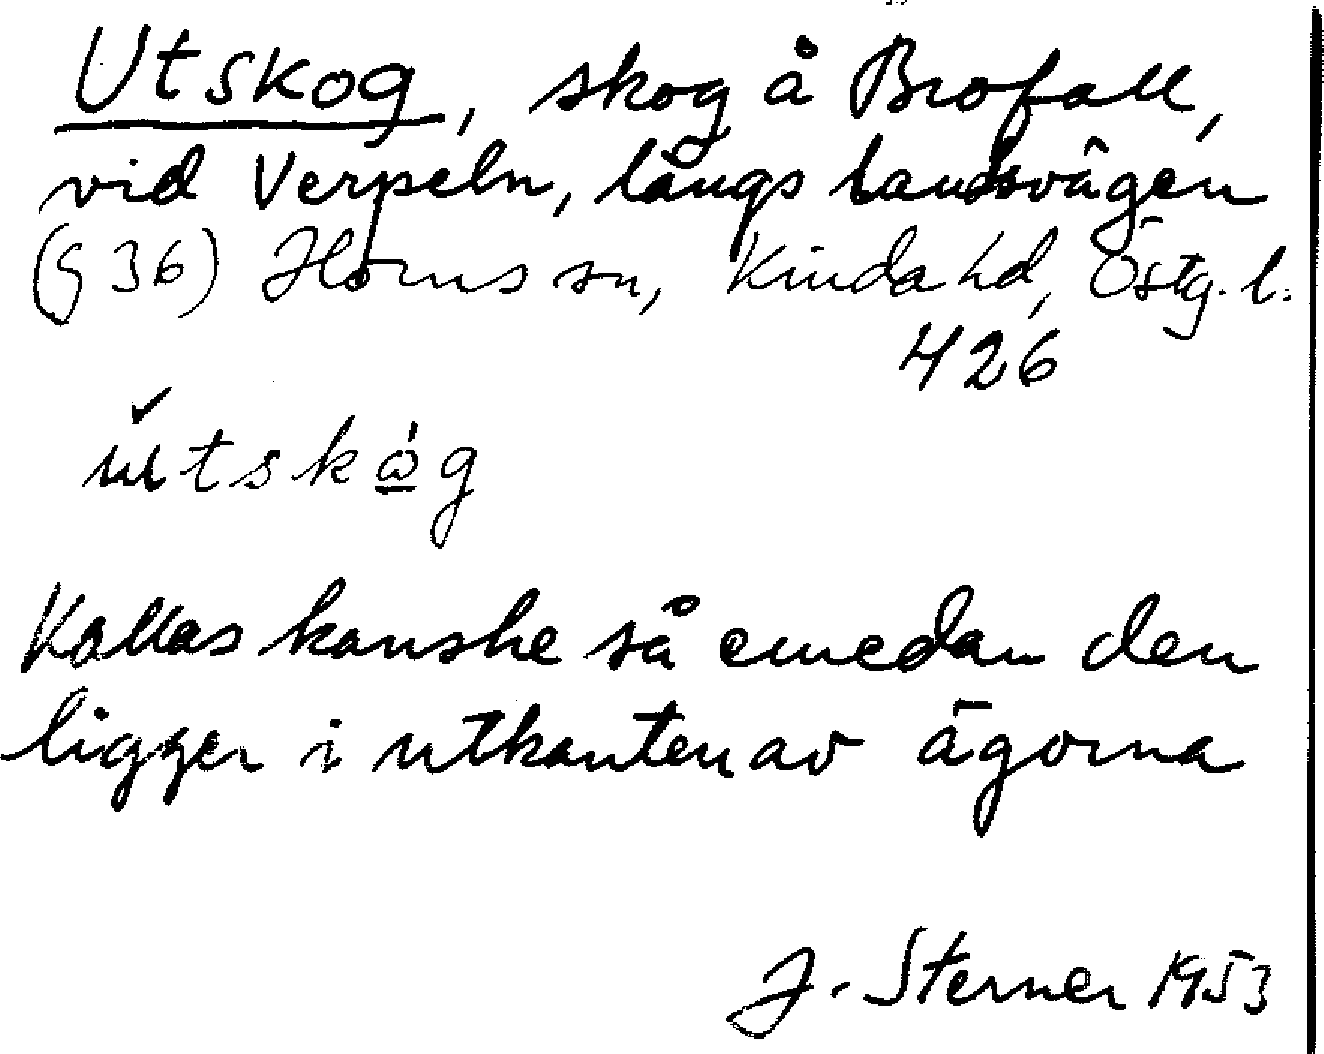 Utskog, skog å Brofall,
vid Verpeln, längs landsvägen
(§ 36) Horns sn, Kinda hd, Östg. l.
426
ùtskå̀g
Kallas kanske så emedan den
ligger i utkanten av ägorna
J. Sterner 1953